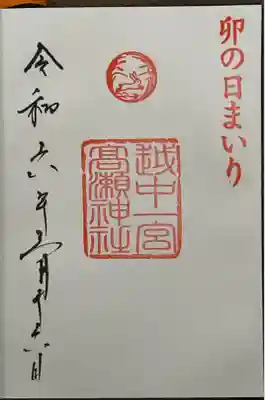 卯の日まいり
越中一宮
高瀬神社
令和六年三月十六日